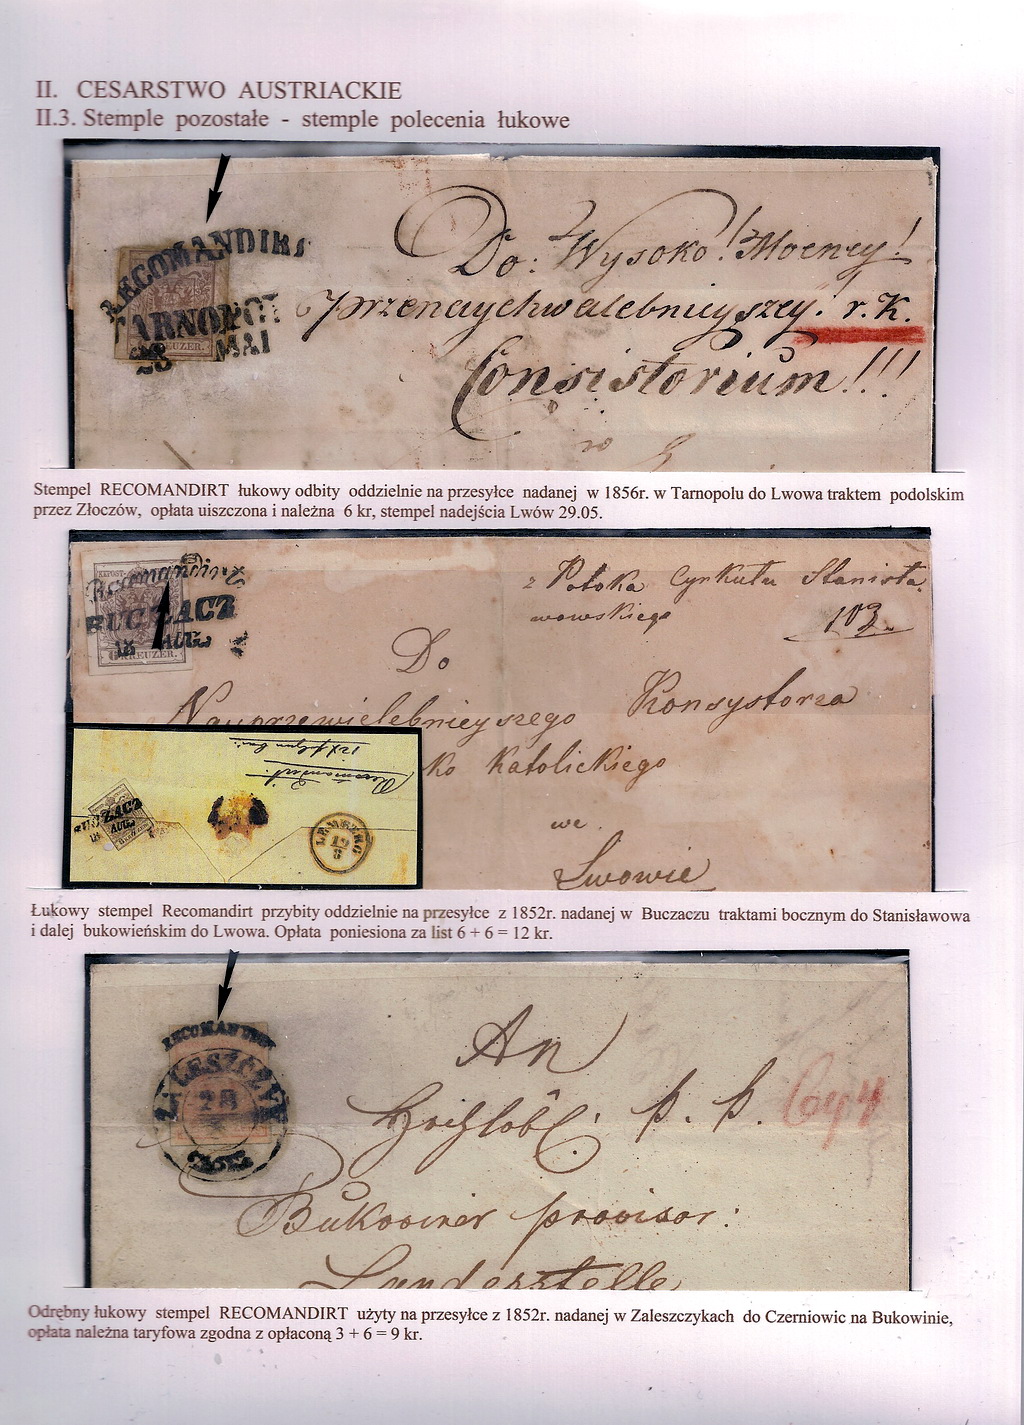 II. CESARSTWO AUSTRIACKIE
II.3. Stemple pozostałe - stemple polecenia łukowe
RECOMANDIRT
TARNOPOL
28 MAI
KREUZER.
Do: Wysoko! Mocney!
Przenaychwalebnieyszey. r. K.
Consistorium!!!
Stempel RECOMANDIRT łukowy odbity oddzielnie na przesyłce nadanej w 1856r. w Tarnopolu do Lwowa traktem podolskim
przez Złoczów, opłata uiszczona i należna 6 kr, stempel nadejścia Lwów 29.05.
Recomandirt
BUCZACZ
18 AUG.
6 KREUZER.
z Potoka Cyrkułu Stanisła
wowskiego
103.
Do
Nayprzewielebnieyszego Konsystorza
ko Katolickiego
we
Lwowie
Recomandirt.
BUCZACZ
18 AUG.
LEMBERG
19
8
Łukowy stempel Recomandirt przybity oddzielnie na przesyłce z 1852r. nadanej w Buczaczu traktami bocznym do Stanisławowa
i dalej bukowieńskim do Lwowa. Opłata poniesiona za list 6 + 6 = 12 kr.
RECOMANDIRT
ZALESZCZYK
28
An
p. p.
Bukowiner provisor:
Landesstelle
Odrębny łukowy stempel RECOMANDIRT użyty na przesyłce z 1852r. nadanej w Zaleszczykach do Czerniowic na Bukowinie,
opłata należna taryfowa zgodna z opłaconą 3 + 6 = 9 kr.